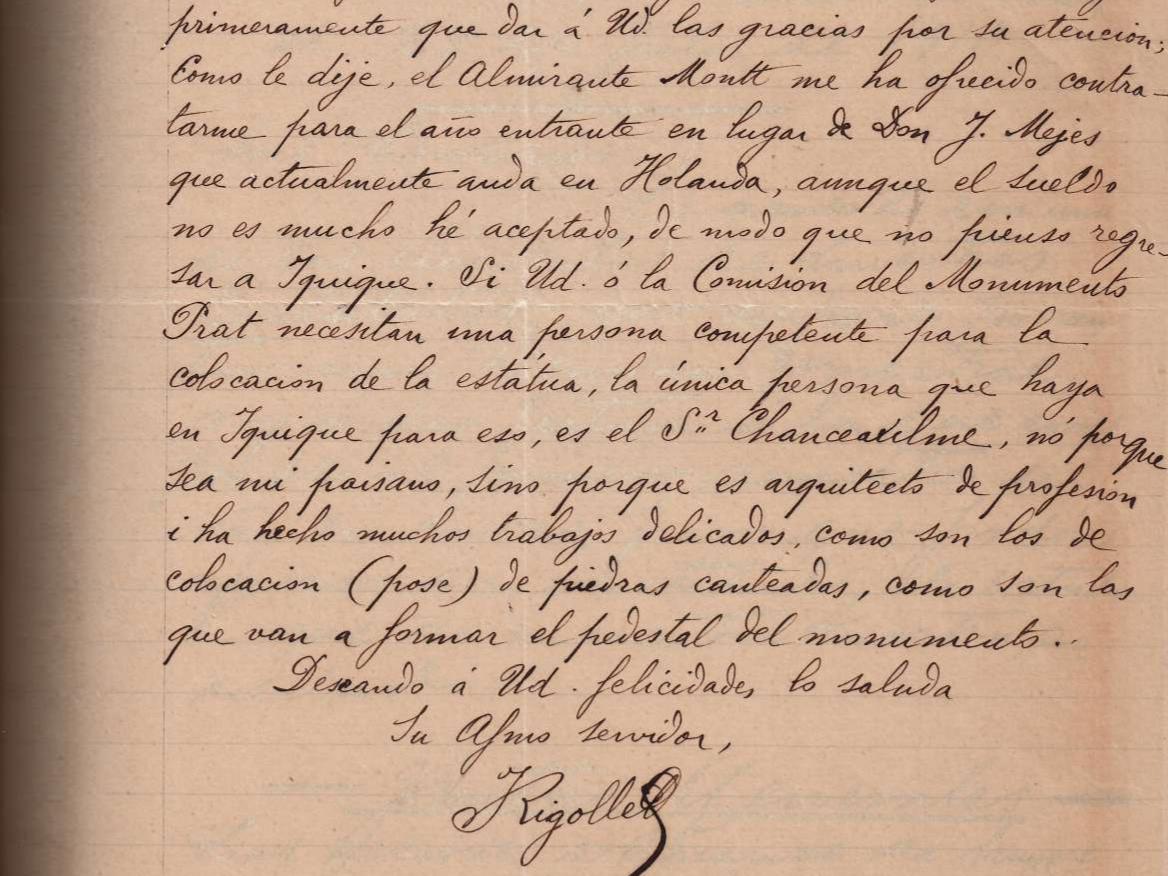 primeramente que dar á Ud. las gracias por su atencion;
Como le dije, el Almirante Montt me ha ofrecido contra-
tarme para el año entrante en lugar de Don J. Mejes
que actualmente anda en Holanda, aunque el sueldo
no es mucho hé aceptado, de modo que no pienso regre-
sar a Iquique. Si Ud. ó la Comision del Monumento
Prat necesitan una persona competente para la
colocacion de la estátua, la única persona que haya
en Iquique para eso, es el Sr. Chanceaulme, nó porque
sea mi paisano, sino porque es arquitecto de profesión
i ha hecho muchos trabajos delicados, como son los de
colocacion (pose) de piedras canteadas, como son las
que van a formar el pedestal del monumento..
Deseando á Ud. felicidades lo saluda
Su Afmo servidor,
Rigollet